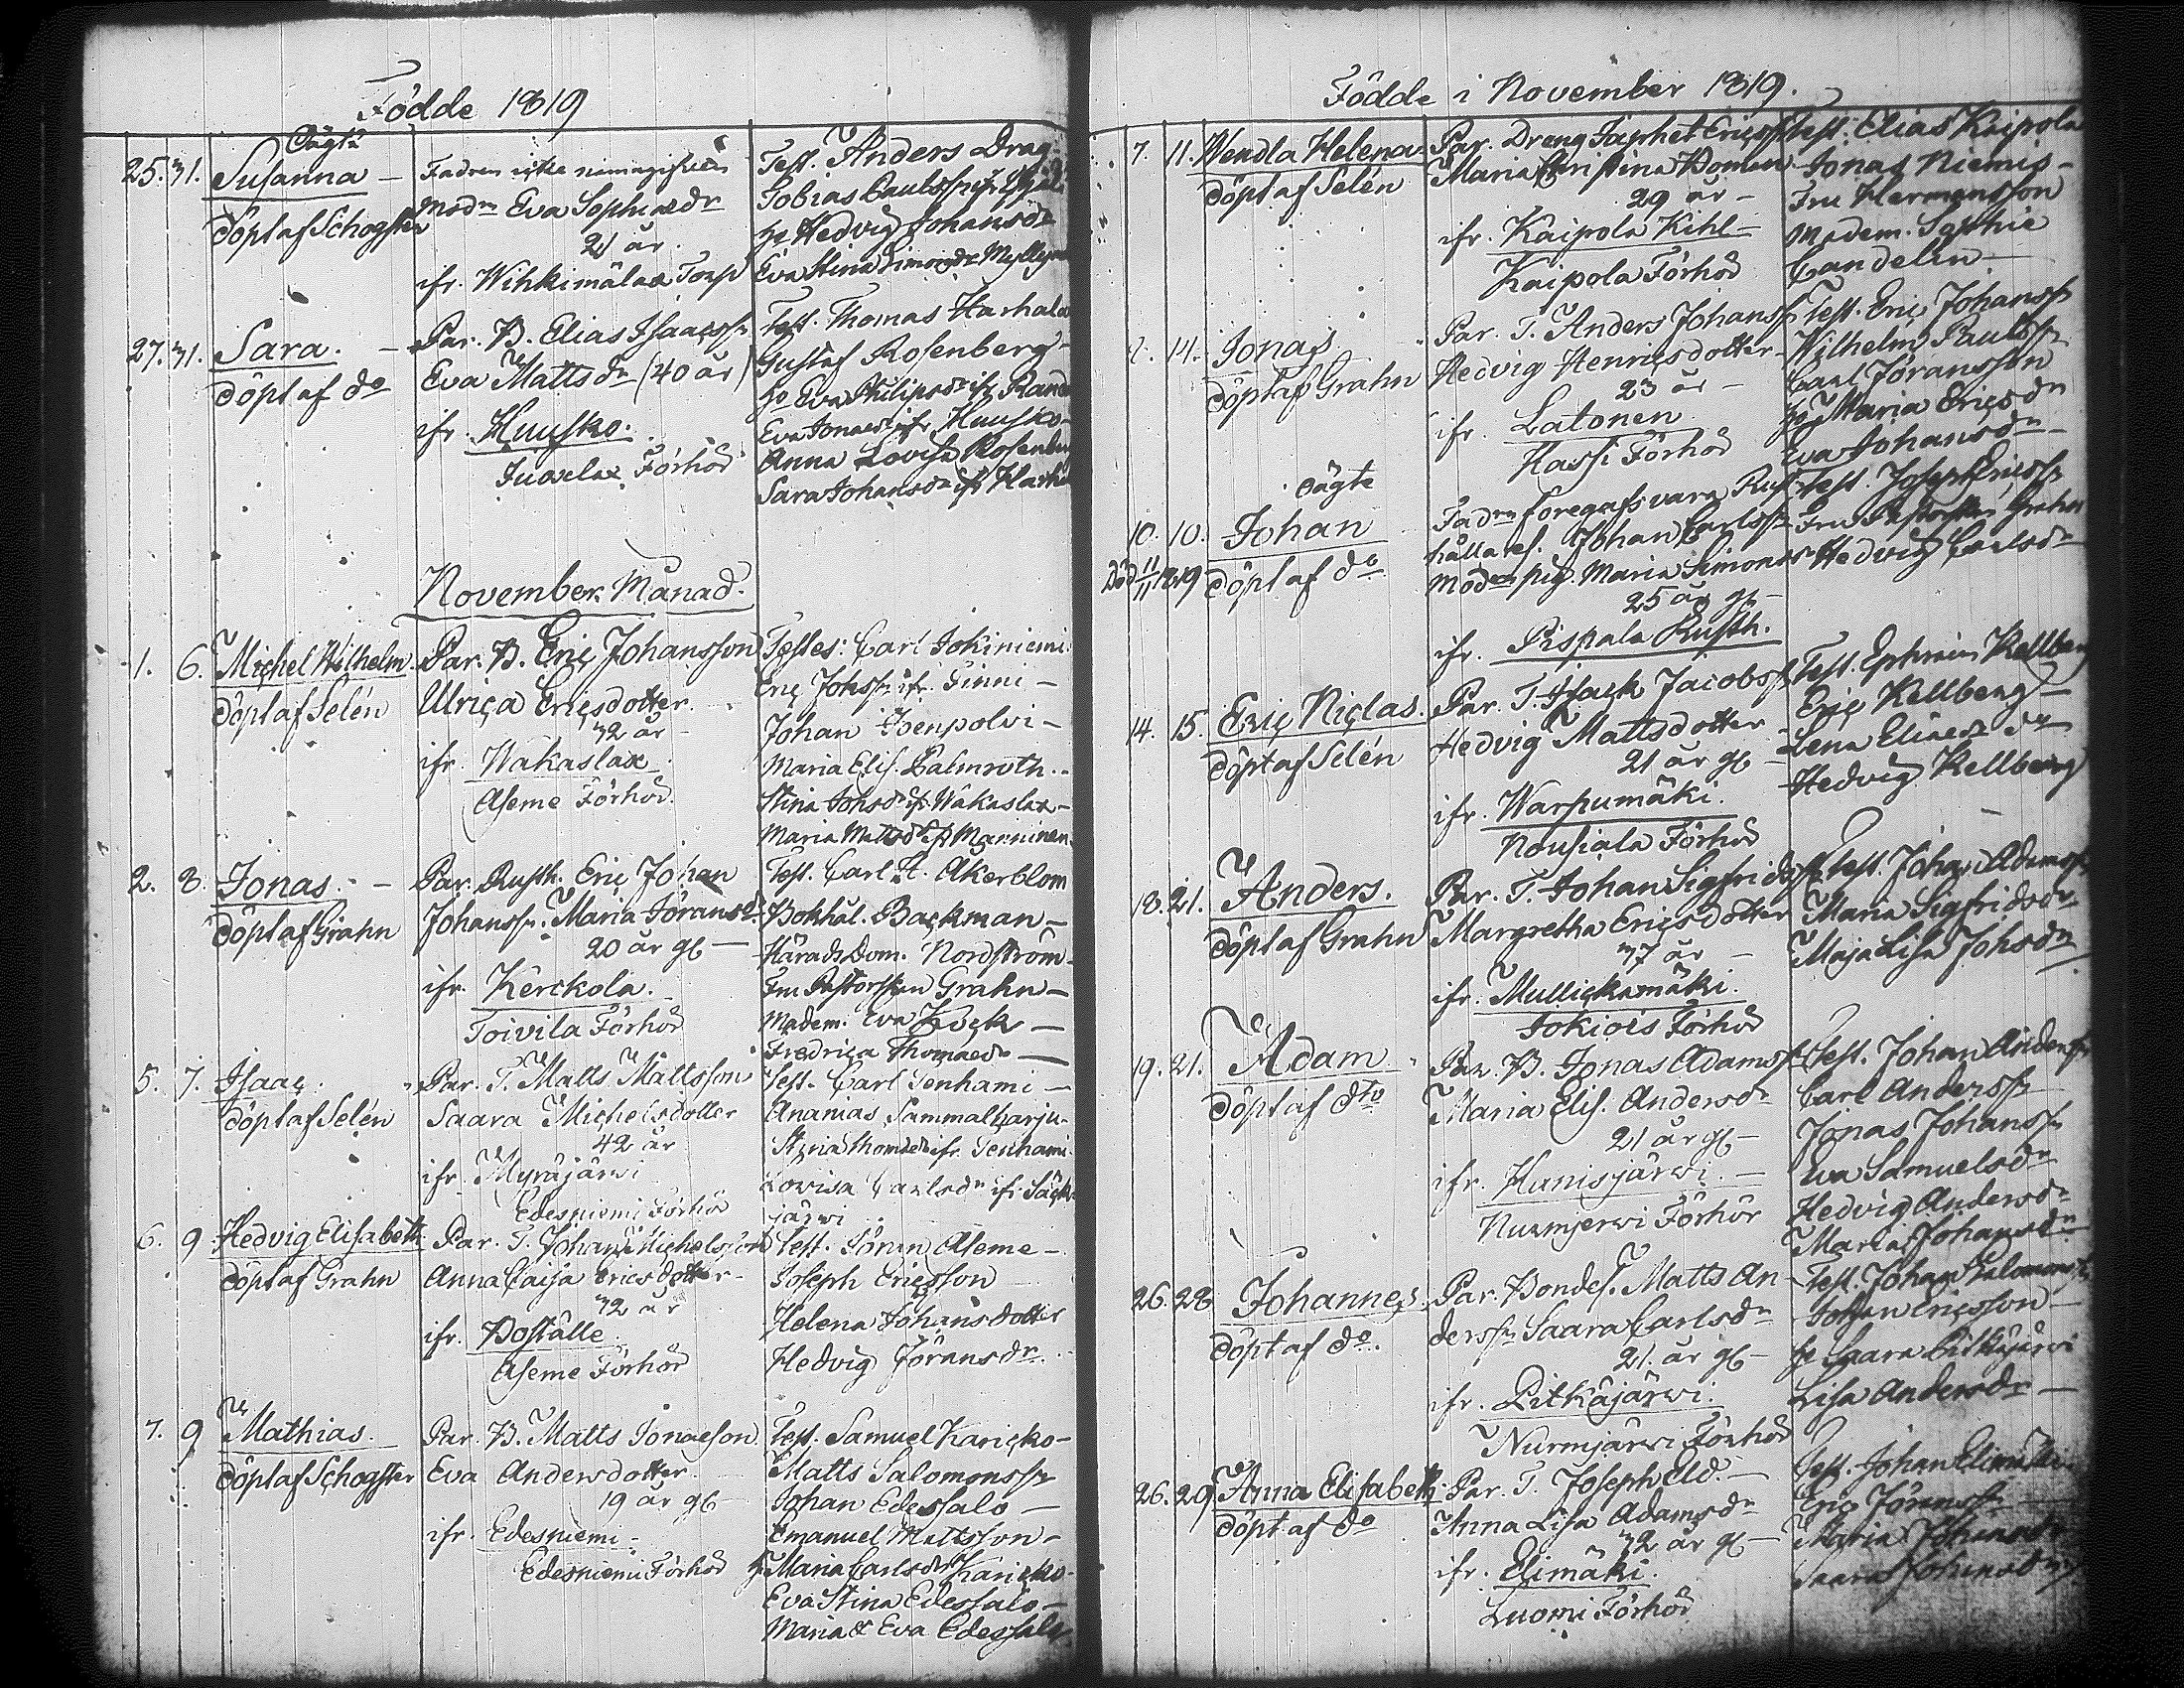 Födde 1819
Oägta
25. 31. Susanna — Fadren icke Test. Anders Drag-
döpt af Schogster Modn Eva Sophiaedr Tobias Paulssn ifr
21 år. ho Hedvig Johansdr
ifr. Wihkimälax Torp Eva Stina Simonsdr
27. 31. Sara. — Par. B. Elias Isaacssn Test. Thomas Harhala
döpt af do Eva Mattsdr (40 år) Gustaf Rosenberg
ifr. Huusko. ho Eva Philipsdr ifr
Juoxlax Förhör Eva Jonaedr ifr Huusko
Anna Lovisa Rosenberg
Sara Johansdr ifr
November Månad.
1. 6. Michel Wilhelm Par. B. Eric Johansson Testes: Carl Jokiniemi
döpt af Selén Ulrica Ericsdotter Eric Johssn ifr. Finni —
32 år Johan
ifr. Wakaslax Maria Elis. Palmroth
Aseme Förhör. Stina Johsdr ifr Wakaslax —
Maria Mattsdr ifr Manninen
2. 8. Jonas. — Par. Rusth. Eric Johan Test. Carl A. Åkerblom
döpt af Grahn Johanssn. Maria Jöransdr Bokhål. Backman —
20 år gl — Härads Dom. Nordström
ifr. Kerckola. Fru Pastorskan Grahn —
Toivila Förhör Madem. Eva
Fredrica Thomaedr —
5. 7. Isaac. Par. T. Matts Mattsson Test. Carl Tenhami —
döpt af Selén Saara Michelsdotter Ananias Sammalharju
42 år Thomaedr ifr. Tenhami
ifr. Myräjärwi Lovisa Carlsdr ifr. Säck-
Edesniemi Förhör järwi
6. 9 Hedvig Elisabeth Par. T. Johan Michelsson Test. Jöran Aseme —
döpt af Grahn Anna Caisa Ericsdotter Joseph Ericsson
32 år Helena Johansdotter
ifr. Boställe Hedvig Jöransdr.
Aseme Förhör
7. 9 Mathias. Par. B. Matts Jonaeson Test. Samuel Karicko —
döpt af Schogster Eva Andersdotter Matts Salomonssn
19 år gl — Johan Edessalo —
ifr. Edesniemi Emanuel Mattsson —
Edesniemi Förhör ho Maria Carlsdr Karicko
Eva Stina Edessalo —
Maria & Eva Edessalo
Födde i November 1819.
7. 11. Wendla Helena Par. Dreng Japhet Ericssn Test. Elias Kaipola
döpt af Selén Maria Christina Jonas Niemis —
29 år — Fru Hermansson
ifr. Kaipola Kihl — Madem. Sophie
Kaipola Förhör Candelin —
14. Jonas. Par. T. Anders Johanssn Test. Eric Johanssn
döpt af Grahn Hedvig Henricsdotter Wilhelm Paulssn
23 år — Carl Göransson
ifr. Latonen ho Maria Ericsdr
Hassi Förhör Eva Johansdr —
oägte
10. 10. Johan Fadren föregafs vara Rust- Test. Joseph Ericssn
Död 11/11 1819 döpt af do hålla res. Johan Carlssn Fru Pastorskan Grahn
Modren pig. Maria Simonsdr Hedvig Carlsdr
25 år gl —
ifr. Pispala Rusth.
14. 15. Eric Niclas. Par. T. Isack Jacobssn Test. Ephraim Kellberg
döpt af Selén Hedvig Mattsdotter Eric Kellberg —
21 år gl — Lena Eliaedr
ifr. Warpumäki. Hedvig Kellberg
Nousiala Förhör
18. 21. Anders. Par. T. Johan Sigfridssn Test. Johan Adamssn
döpt af Grahn Margretha Ericsdotter Maria Sigfridsdr
37 år — Maja Lisa Johsdr
ifr. Mullickamäki.
Jokiois Förhör
19. 21. Adam Par. B. Jonas Adamssn Test. Johan Anderssn
döpt af dto Maria Elis. Andersdr Carl Anderssn
21 år gl — Jonas Johanssn
ifr. Hunisjärwi. — Eva Samuelsdr
Nurmjerwi Förhör Hedvig Andersdr
Maria Johansdr
26. 28 Johannes. Par. Bondes. Matts An- Test. Johan Salomonssn
döpt af do. derssn Saara Carlsdr Johan Ericsson —
21. år gl — ho Saara Pitkäjärwi
ifr. Pitkäjärwi. Lisa Andersdr —
Nurmjärwi Förhör
26. 29. Anna Elisabeth. Par. T. Joseph Eld. — Test. Johan Elimäki
döpt af do Anna Lisa Adamsdr Eric Jöranssn
32 år gl — Maria Johansdr
ifr. Elimäki. Saara Johansdr
Luomi Förhör